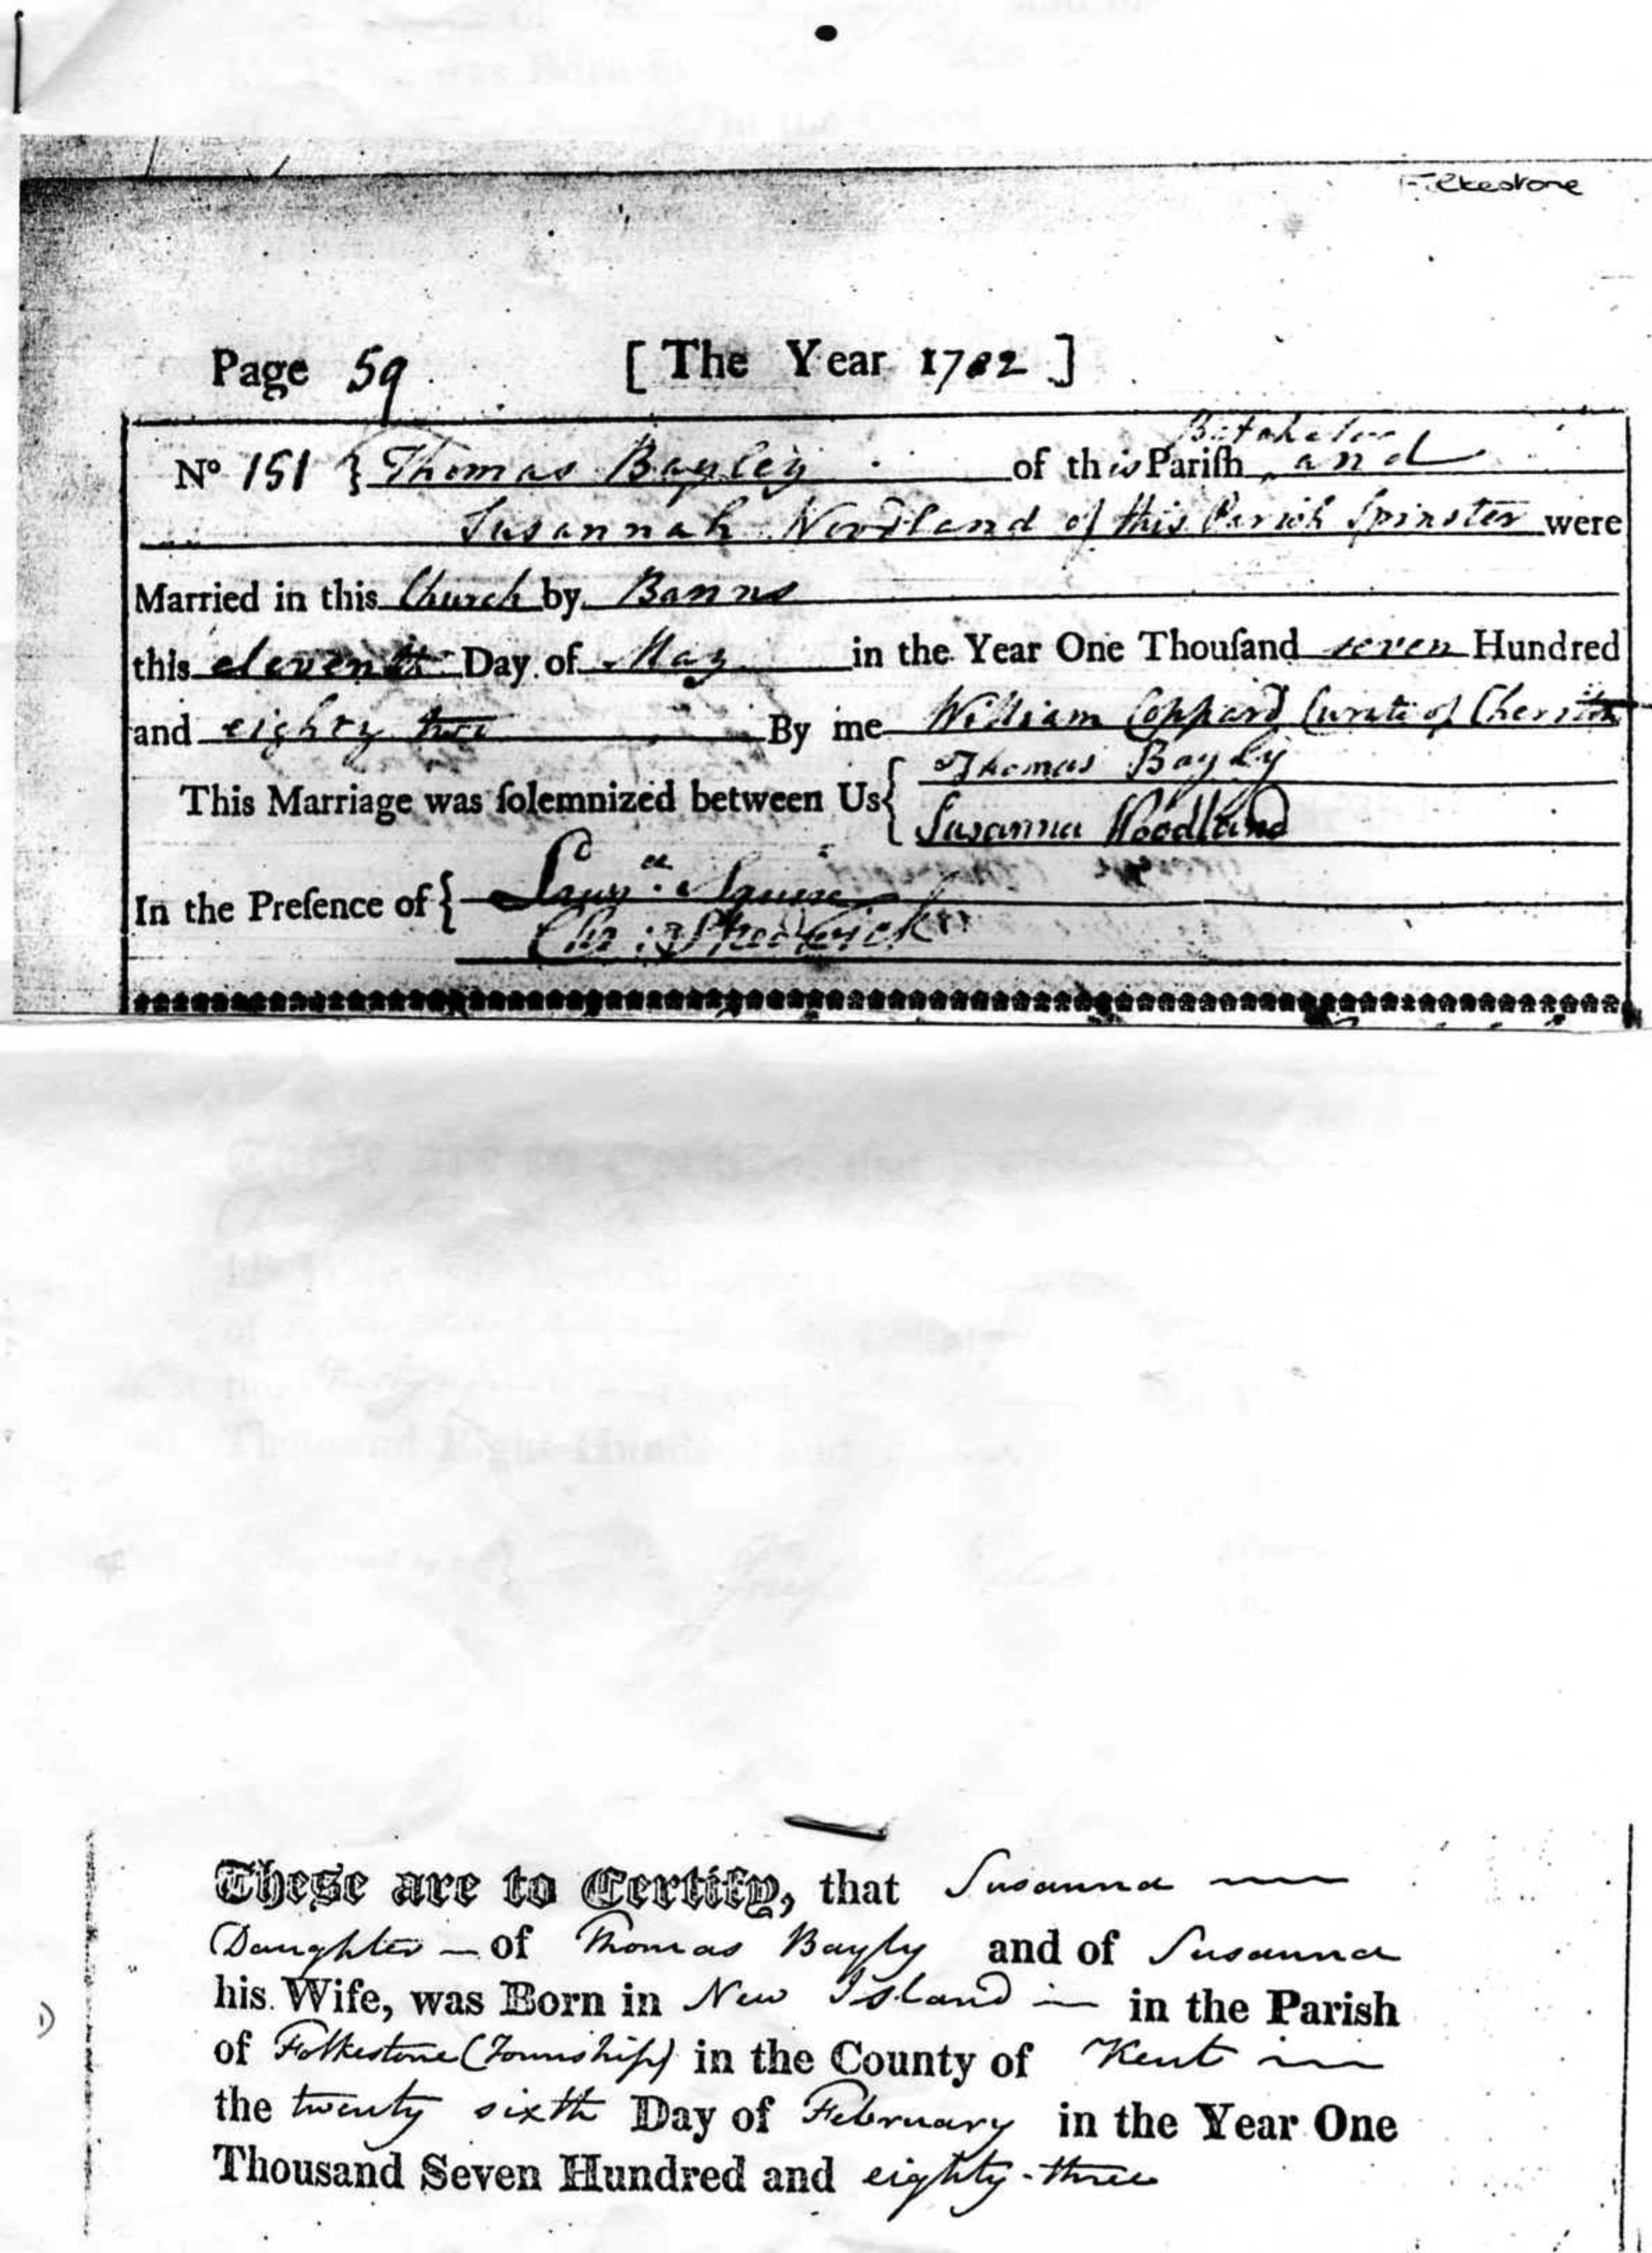 Folkestone
Page 59 [ The Year 1782 ]
Batchelor
No 151 } Thomas Bayley of this Pariſh, and
Susannah Woodland of this Parish Spinster were
Married in this Church by Banns
this eleventh Day of May in the Year One Thouſand seven Hundred
and eighty two By me William Coppard Curate of Cheriton
Thomas Bayly
This Marriage was ſolemnized between Us {
Susanna Woodland
In the Preſence of { Lawce: Squire
Chr:
These are to Certify, that Susanna
Daughter of Thomas Bayly and of Susanna
his Wife, was Born in New Island in the Parish
of Folkestone (Township) in the County of Kent
1)
the twenty sixth Day of February in the Year One
Thousand Seven Hundred and eighty-three